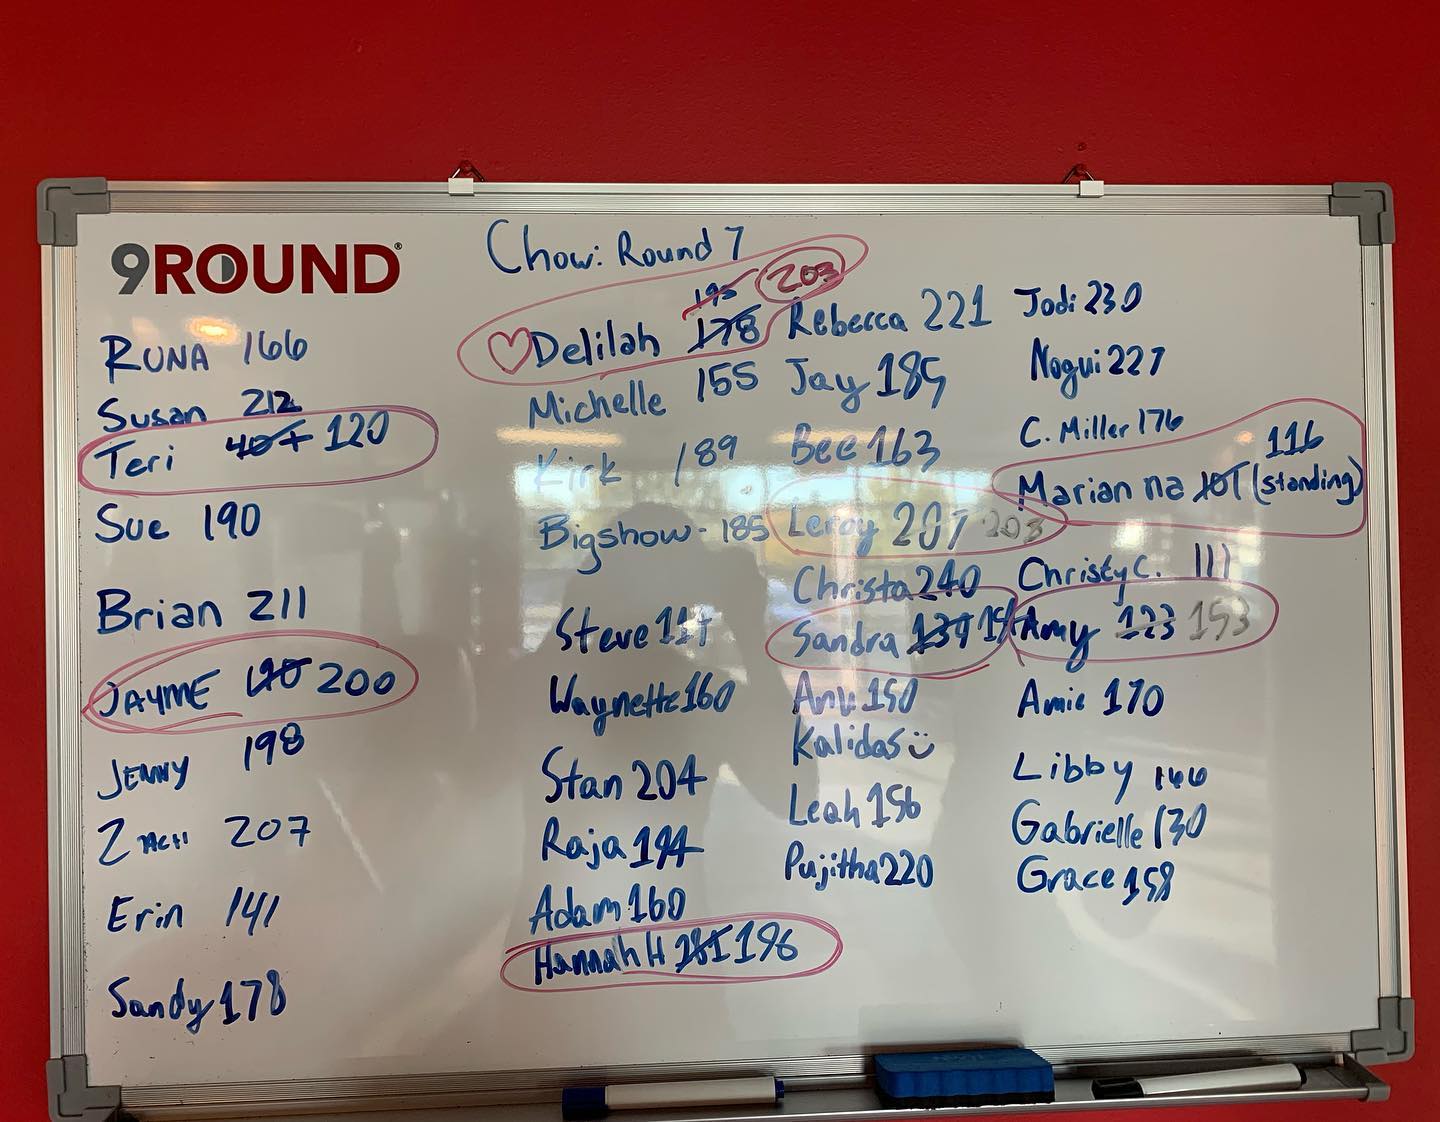 9ROUND®
Chow: Round 7
RUNA 166
Susan 212
Teri 120
Sue 190
Brian 211
JAYME 200
JENNY 198
ZACH 207
Erin 141
Sandy 178
Delilah 178 195 203
Michelle 155
Kirk 189
Bigshow - 185
Steve 117
Waynette 160
Stan 204
Raja 194
Adam 160
Hannah H 181 196
Rebecca 221
Jay 185
Bee 163
Leroy 207 203
Christa 240
Sandra 139
Anu 150
Kalidas
Leah 156
Pujitha 220
Jodi 230
Nogui 227
C. Miller 176
Marianna 101 116 (standing)
Christy C. 111
Amy 123 153
Amie 170
Libby 146
Gabrielle 130
Grace 158